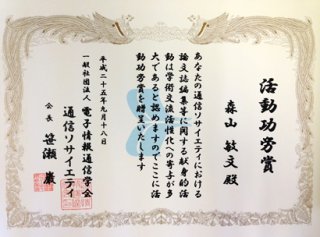 活動功労賞
森山 敏文 殿
あなたの通信ソサイエティにおける
論文誌編集等に関する献身的活
動は学術交流活性化への寄与が多
大であると認めますのでここに活
動功労賞を贈呈いたします
平成二十五年九月十八日
一般社団法人 電子情報通信学会
通信ソサイエティ
会長 笹瀬 巌